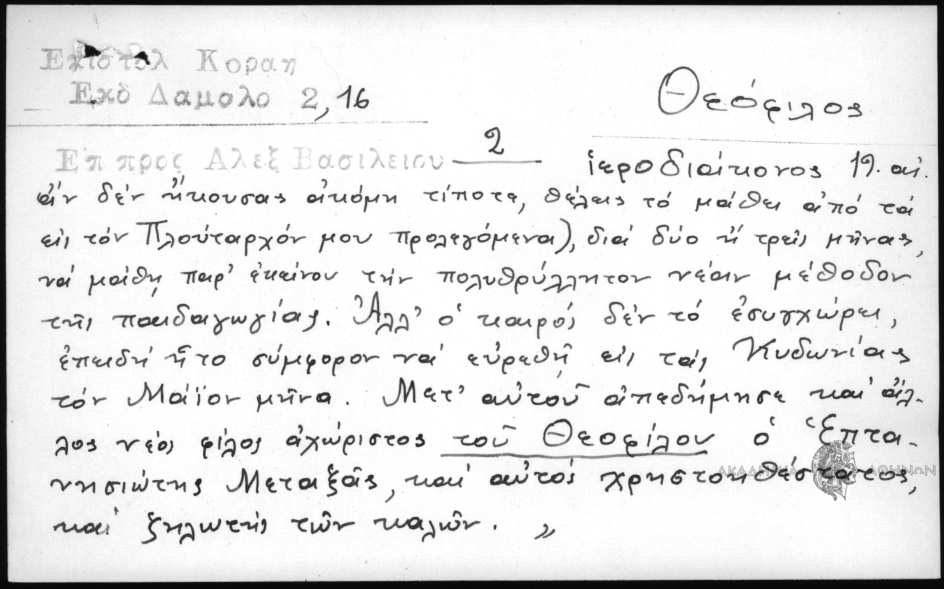 Επιστολ Κοραη
Εκδ Δαμαλα 2, 16
Θεόφιλος
Επ προς Αλεξ Βασιλειου 2
ἱεροδιάκονος 19. αἰ.
ἄν δέν ἤκουσας ἀκόμη τίποτε, θέλεις τό μάθει ἀπό τά
εἰς τόν Πλούταρχόν μου προλεγόμενα), διά δύο ἤ τρεῖς μῆνας,
νά μάθῃ παρ' ἐκείνου τήν πολυθρύλλητον νέαν μέθοδον
τῆς παιδαγωγίας. Ἀλλ' ὁ καιρός δέν τό ἐσυγχώρει,
ἐπειδή ἦτο σύμφορον νά εὑρεθῇ εἰς τάς Κυδωνίας
τόν Μάϊον μῆνα. Μετ' αὐτοῦ ἀπεδήμησε καί ἄλ-
λος νέος φίλος ἀχώριστος τοῦ Θεοφίλου ὁ Ἑπτα-
νησιώτης Μεταξᾶς, και αὐτός χρηστοηθέστατος,
καί ζηλωτής τῶν καλῶν. »
ΑΚΑΔΗΜΙΑ ΑΘΗΝΩΝ